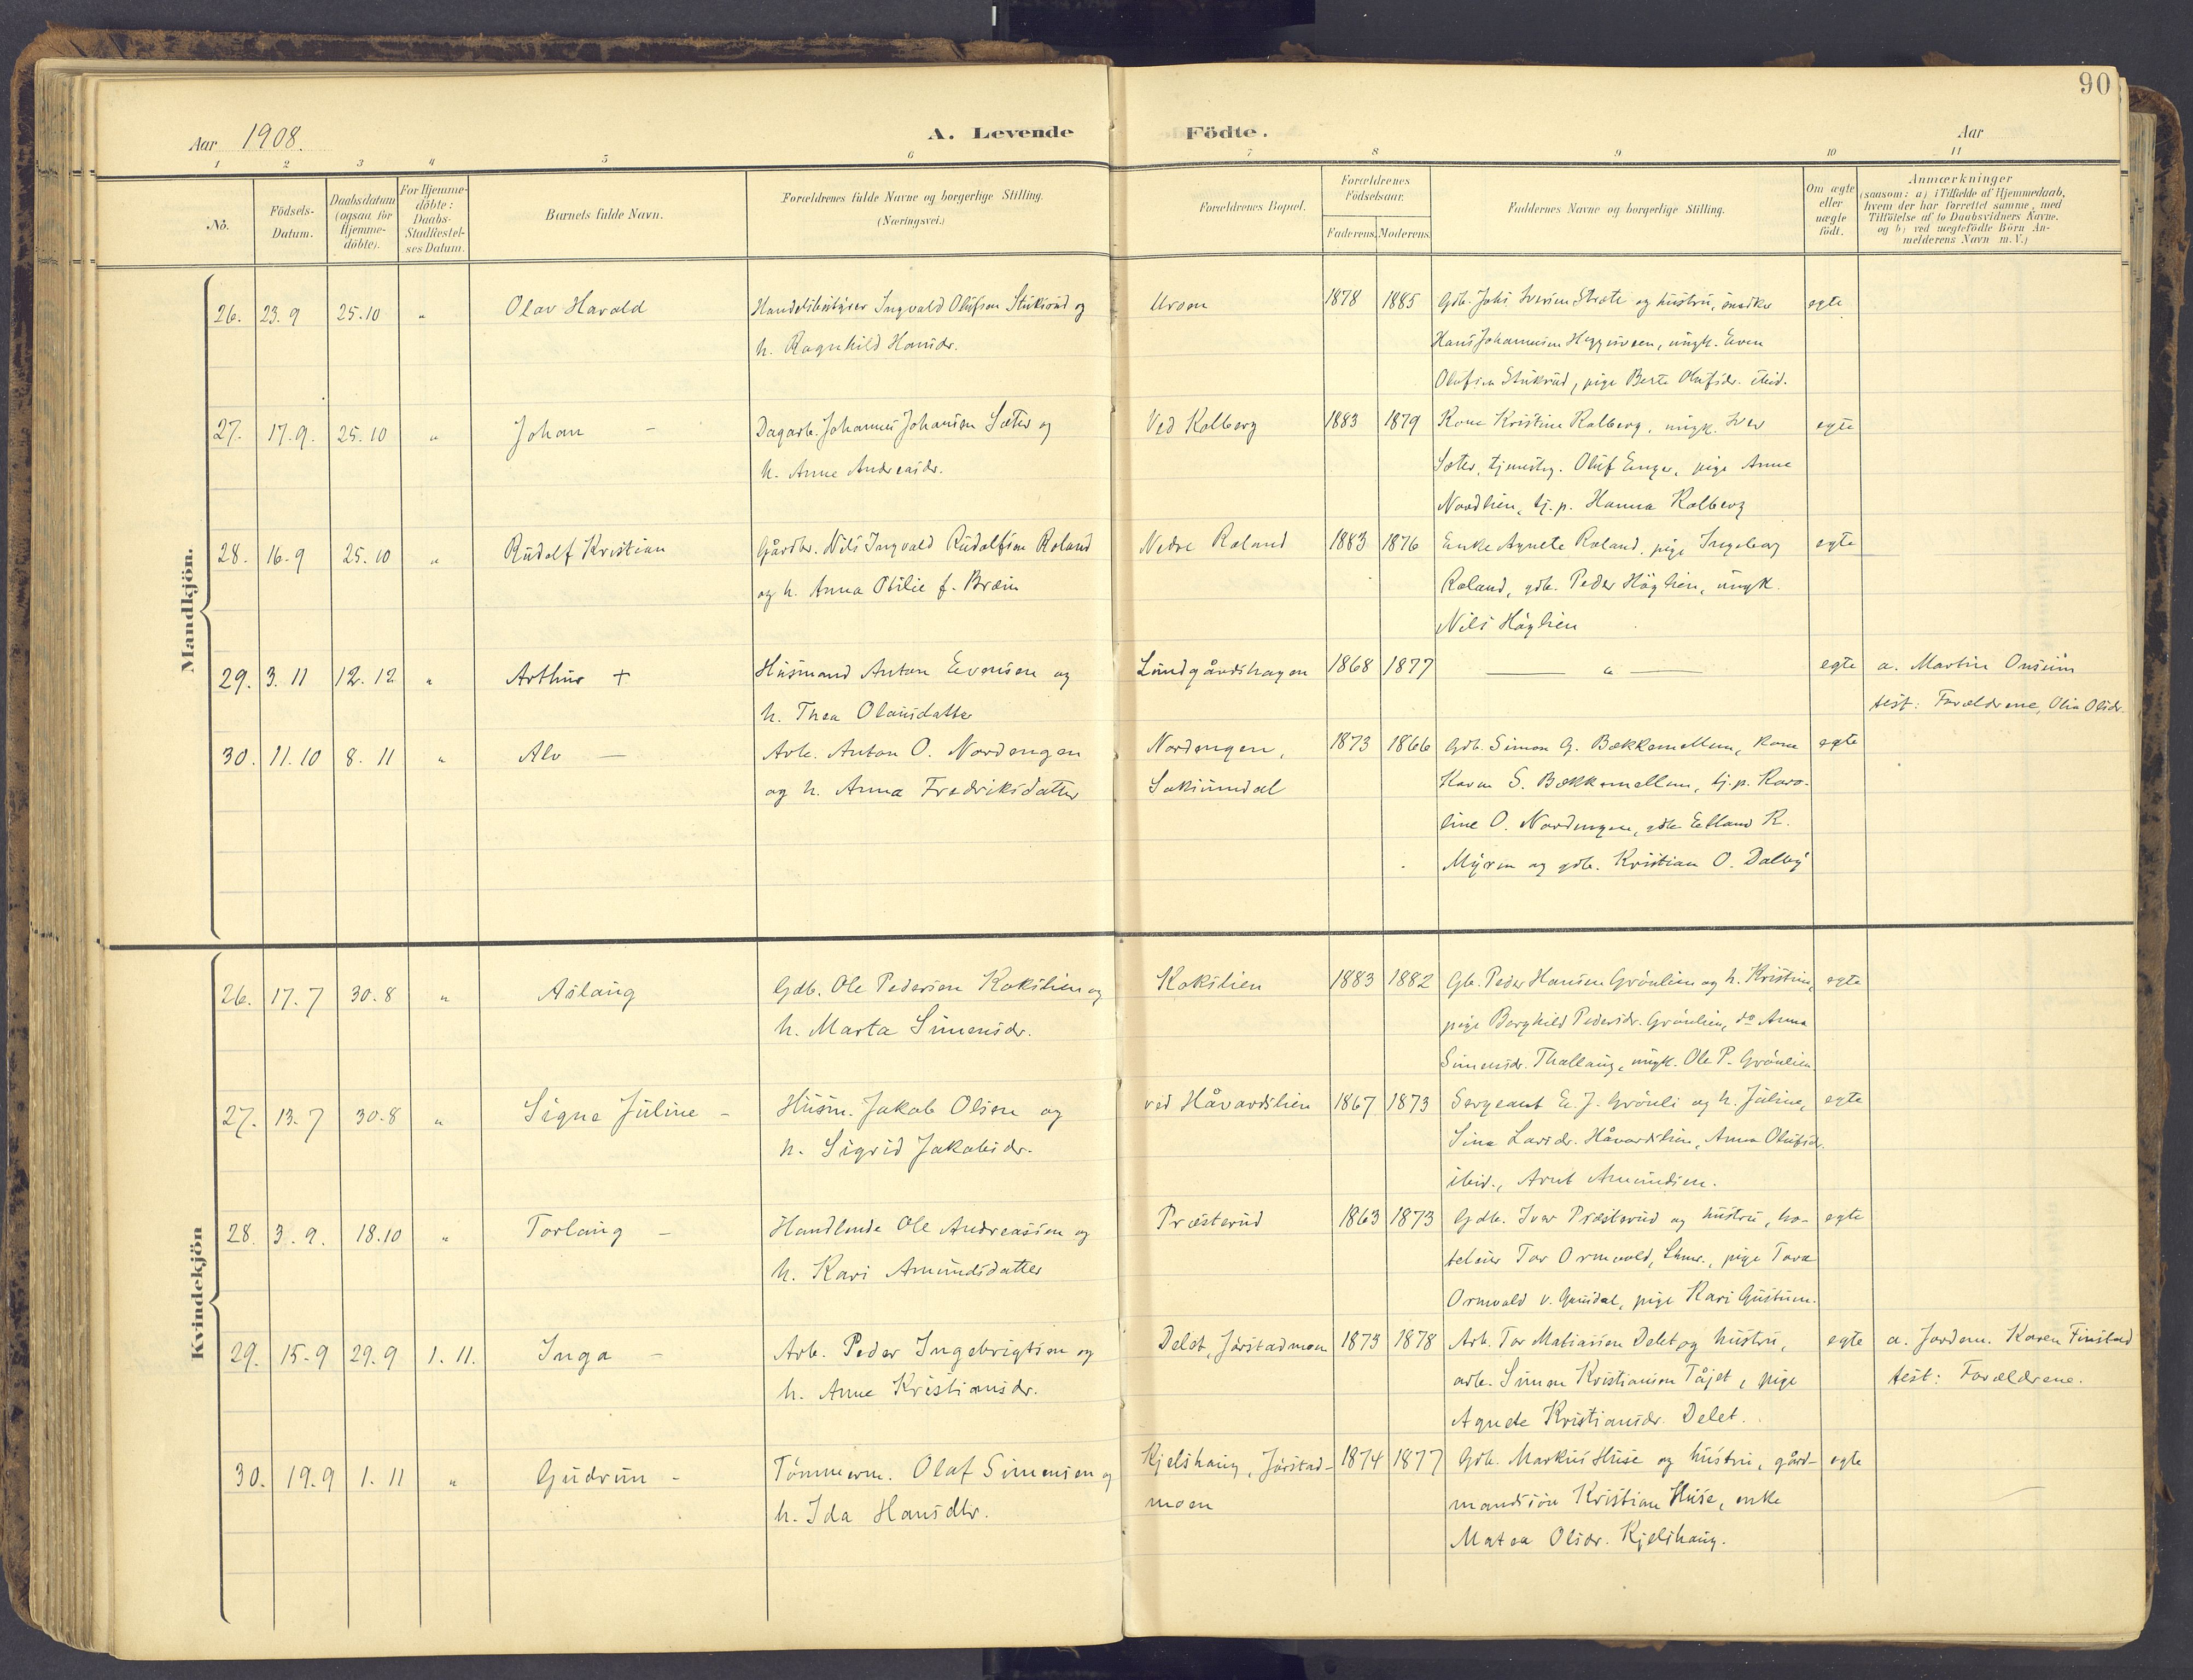 90
Aar 1908.
A. Levende Födte.
Aar
1 2 3 4 5 6 7 8 9 10 11
No.
Födsels-Datum.
Daabsdatum (ogsaa for Hjemme-döbte).
For Hjemme-döbte: Daabs-Stadfæstel-ses Datum.
Barnets fulde Navn.
Forældrenes fulde Navne og borgerlige Stilling.
(Næringsvei.)
Forældrenes Bopæl.
Forældrenes Födselsaar.
Faderens. Moderens.
Faddernes Navne og borgerlige Stilling.
Om ægte eller uægte födt.
Anmærkninger
(saasom: a) i Tilfælde af Hjemmedaab,
hvem der har forrettet samme, med
Tilföielse af to Daabsvidners Navne.
og b) ved uægtefödte Börn An-
melderens Navn m. V.)
Mandkjön.
26. 23.9 25.10 " Olav Harald Handelsbestyrer Ingvald Olufsen Stuksrud og Uroen 1878 1885 Gdb. Johs Iversen Stræte og hustru, snedker egte
h. Ragnhild Hansdr. Hans Johannesen Heggisveen, ungk. Even
Olufsen Stuksrud, pige Berte Olufsdr. ibid.
27. 17.9. 25.10 " Johan – Dagarb. Johannes Johansen Sæter og Ved Kolberg 1883 1879 Kone Kristine Kalberg, ungk. Iver egte
h. Anne Andreasdr. Sæter, tjenestg. Oluf Enger, pige Anne
Nordlien, tj.p. Hanna Kolberg
28. 16.9 25.10 " Rudolf Kristian Gårdbr. Nils Ingvald Rudolfsen Roland Nedre Roland 1883 1876 Enke Agnete Roland, pige Ingeborg egte
og h. Anna Otilie f. Bræin Roland, gdb. Peder Höglien, ungk.
Nils Höglien
29. 3.11 12.12 " Arthur + Husmand Anton Evensen og Lundgårdshagen 1868 1877 — " — egte a. Martin Onsum
h. Thea Olausdatter test: Forældrene, Olia Olsdr.
30. 11.10 8.11 " Alv — Arb. Anton O. Nordengen Nordengen, 1873 1866 Gdb. Simon G. Bækkemellem, kone egte
og h. Anna Fredriksdatter Saksumdal Karen S. Bækkemellem, tj.p. Karo-
line O. Nordengen, gdb. Edland K.
Myren og gdb. Kristian O. Dalby
Kvindekjön
26. 17.7 30.8 " Aslaug Gdb. Ole Pedersen Kokslien og Kokslien 1883 1882 Gb. Peder Hansen Grönlien og h. Kristine, egte
h. Marta Simensdr. pige Borghild Pedersdr. Grönlien, do Anna
Simensdr. Thallaug, ungk. Ole P. Grönlien
27. 13.7 30.8 " Signe Juline – Husm. Jakob Olsen og ved Håvardslien 1867 1873 Sergeant E. J. Grönli og h. Juline, egte
h. Sigrid Jakobsdr. Sina Larsdr. Håvardslien, Anna Olufsdr.
ibid., Arnt Amundsen.
28. 3.9. 18.10 " Torlaug – Handlende Ole Andreassen og Præsterud 1863 1873 Gdb. Iver Præsterud og hustru, ho- egte
h. Kari Amundsdatter teleier Tor Ormvold, Lhmr., pige Tora
Ormvold v. Gausdal, pige Kari Gustum.
29. 15.9 29.9 1.11. Inga – Arb. Peder Ingebrigtsen og Delet, Jörstadmoen 1873 1878 Arb. Tor Matiassen Delet og hustru, egte a. Jordem. Karen Finstad
h. Anne Kristiansdr. arb. Simen Kristiansen Tåjet, pige test: Forældrene.
Agnete Kristiansdr. Delet.
30. 19.9 1.11 " Gudrun – Tömmerm. Olaf Simensen og Kjelshaug, Jörstad- 1874 1877 Gdb. Markus Huse og hustru, gård- egte
h. Ida Hansdtr. moen mandssön Kristian Huse, enke
Matea Olsdr. Kjelshaug.